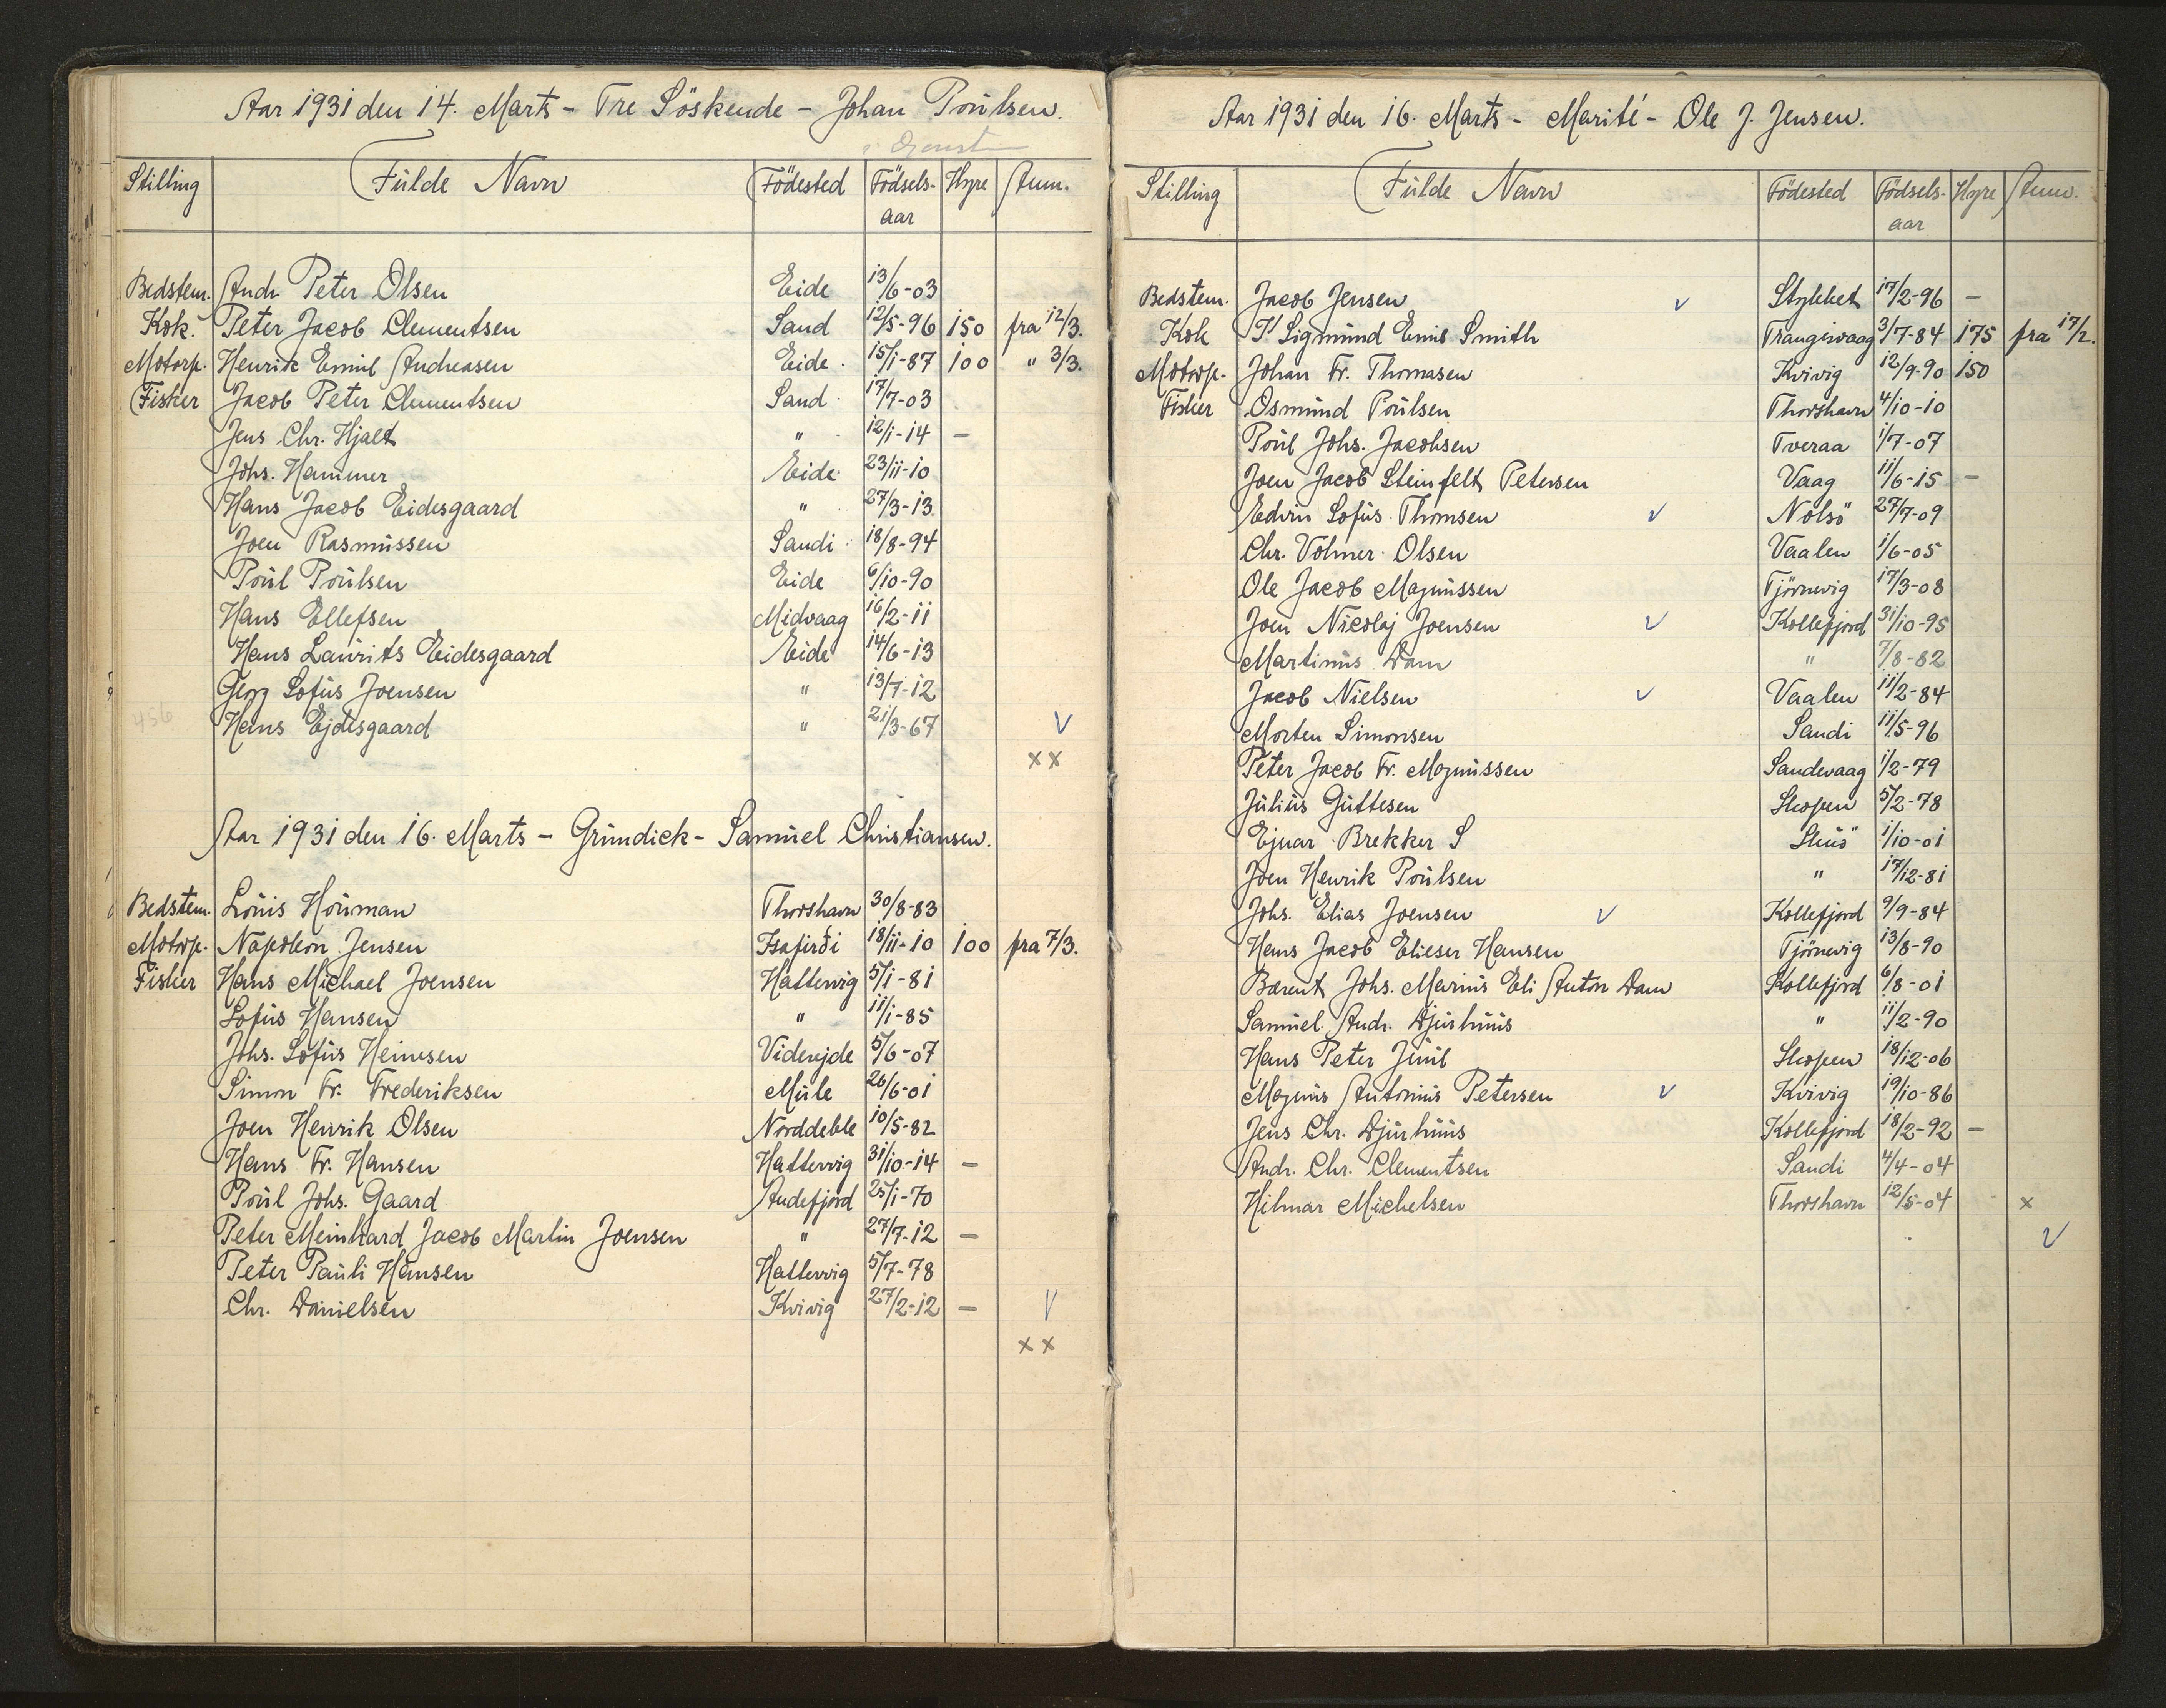 Aar 1931 den 14. Marts - Tre Söskende - Johan Poulsen.
Stilling Fulde Navn Födested Födsels-aar Hyre Anm.
Bedstem. Andr. Peter Olsen Eide 13/6-03
Kok. Peter Jacob Clementsen Sand 12/5-96 150 fra 12/3.
Motorp. Henrik Emil Andreasen Eide 15/1-87 100 " 3/3.
Fisker Jacob Peter Clementsen Sand 17/7-03
Jens Chr. Hjalt " 12/1-14 -
Johs. Hammer Eide 23/11-10
Hans Jacob Eidesgaard " 27/3-13
Joen Rasmussen Sandi 18/8-94
Poul Poulsen Eide 6/10-90
Hans Ellefsen Midvaag 16/2-11
Hans Laurits Eidesgaard Eide 14/6-13
Georg Sofus Joensen " 13/7-12
456 Hans Ejdesgaard " 21/3-67 V
x x
Aar 1931 den 16. Marts - Grundick - Samuel Christiansen.
Bedstem. Louis Houman Thorshavn 30/8-83
Motorp. Napoleon Jensen Isafirði 18/11-10 100 fra 7/3.
Fisker Hans Michael Joensen Hattervig 5/1-81
Sofus Hansen " 11/1-85
Johs. Sofus Heinesen Viderejde 5/6-07
Simon Fr. Frederiksen Mule 26/6-01
Joen Henrik Olsen Norddeble 10/5-82
Hans Fr. Hansen Hattervig 31/10-14 -
Poul Johs. Gaard Andefjord 25/1-70
Peter Meinhard Jacob Martin Joensen " 27/7-12 -
Peter Pauli Hansen Hattervig 5/7-78
Chr. Danielsen Kvivig 27/2-12 - V
x x
Aar 1931 den 16. Marts - Marité - Ole J. Jensen.
Stilling Fulde Navn Födested Födsels-aar Hyre Anm.
Bedstem. Jacob Jensen V Stykket 17/2-96 -
Kok Sigmund Emil Smith Trangisvaag 3/7-84 175 fra 17/2.
Motorp. Johan Fr. Thomasen Kvivig 12/9-90 150
Fisker Osmund Poulsen Thorshavn 4/10-10
Poul Johs. Jacobsen Tveraa 1/7-07
Joen Jacob Steinfelt Petersen Vaag 11/6-15 -
Edvin Sofus Thomsen V Nolsö 27/7-09
Chr. Volmer Olsen Vaalen 1/6-05
Ole Jacob Magnussen Tjörnevig 17/3-08
Joen Nicolaj Joensen V Kollefjord 31/10-95
Martinus Dam " 7/8-82
Jacob Nielsen V Vaalen 11/2-84
Morten Simonsen Sandi 11/5-96
Peter Jacob Fr. Magnussen Sandevaag 1/2-79
Julius Guttesen Skopen 5/2-78
Ejnar Brekker S Skuö 1/10-01
Joen Henrik Poulsen " 17/12-81
Johs. Elias Joensen V Kollefjord 9/9-84
Hans Jacob Elieser Hansen Tjörnevig 13/8-90
Bærent Johs. Marius Eli Anton Dam Kollefjord 6/8-01
Samuel Andr. Djurhuus " 11/2-90
Hans Peter Juul Skopen 18/12-06
Magnus Antonius Petersen V Kvivig 19/10-86
Jens Chr. Djurhuus Kollefjord 18/2-92 -
Andr. Chr. Clementsen Sandi 4/4-04
Hilmar Michelsen Thorshavn 12/5-04 x
V